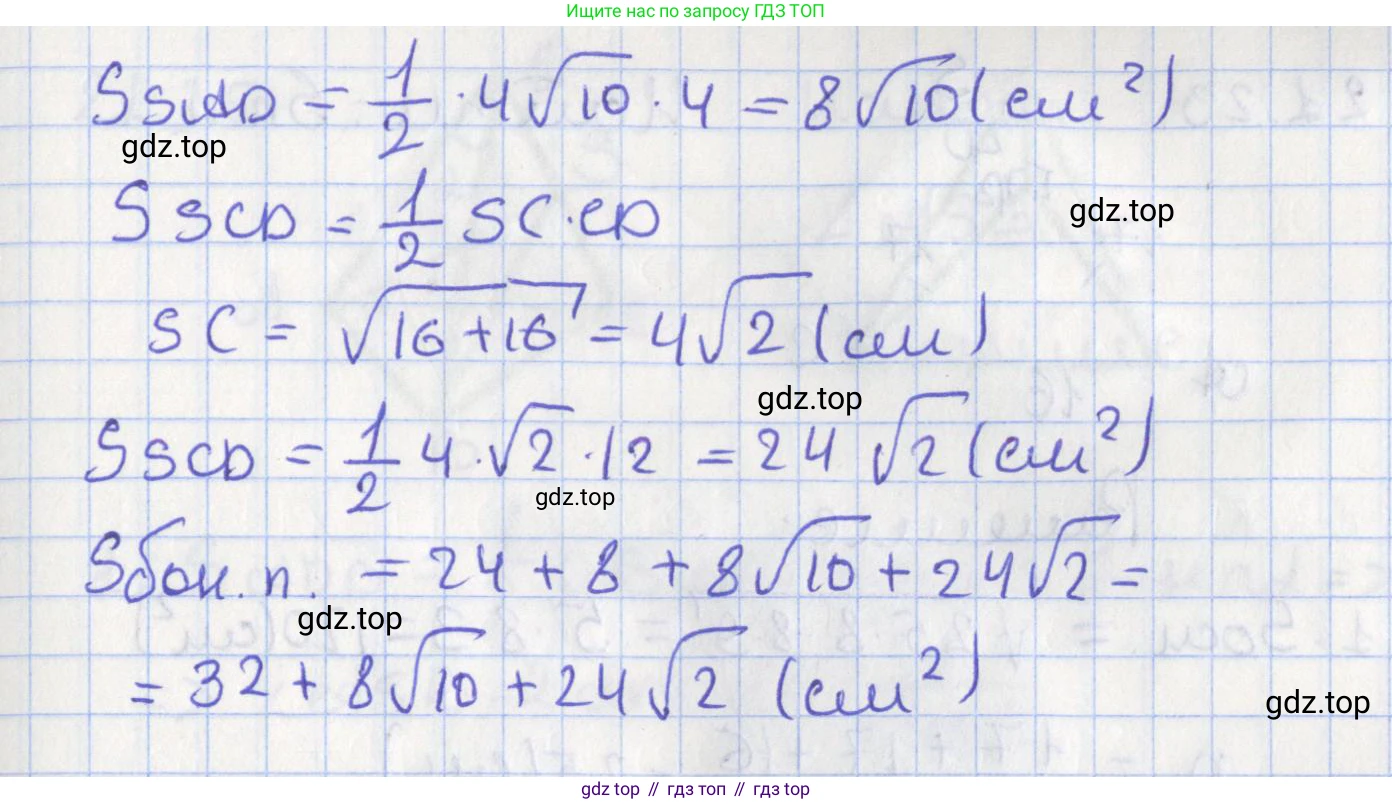 Ищите нас по запросу ГДЗ ТОП
S SAD = 1/2 · 4√10 · 4 = 8√10 (см²)
gdz.top
S SCD = 1/2 SC · CD
gdz.top
SC = √16+16 = 4√2 (см)
gdz.top
S SCD = 1/2 4 · √2 · 12 = 24 √2 (см²)
gdz.top
Sбок. п. = 24 + 8 + 8√10 + 24√2 =
gdz.top
= 32 + 8√10 + 24√2 (см²)
gdz.top
gdz top // гдз топ // gdz top